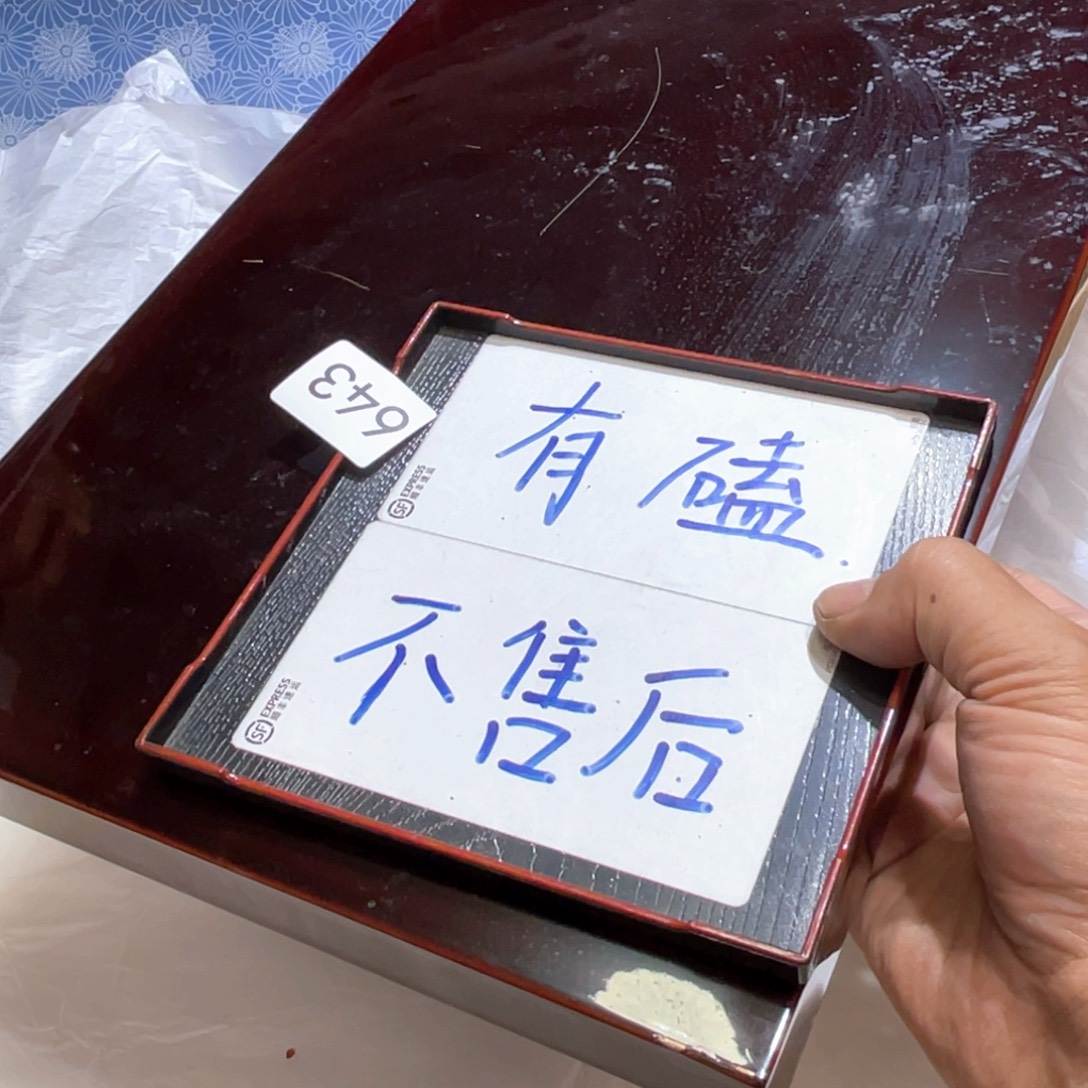 643
有磕.
SF EXPRESS
顺丰速运
不售后
SF EXPRESS
顺丰速运